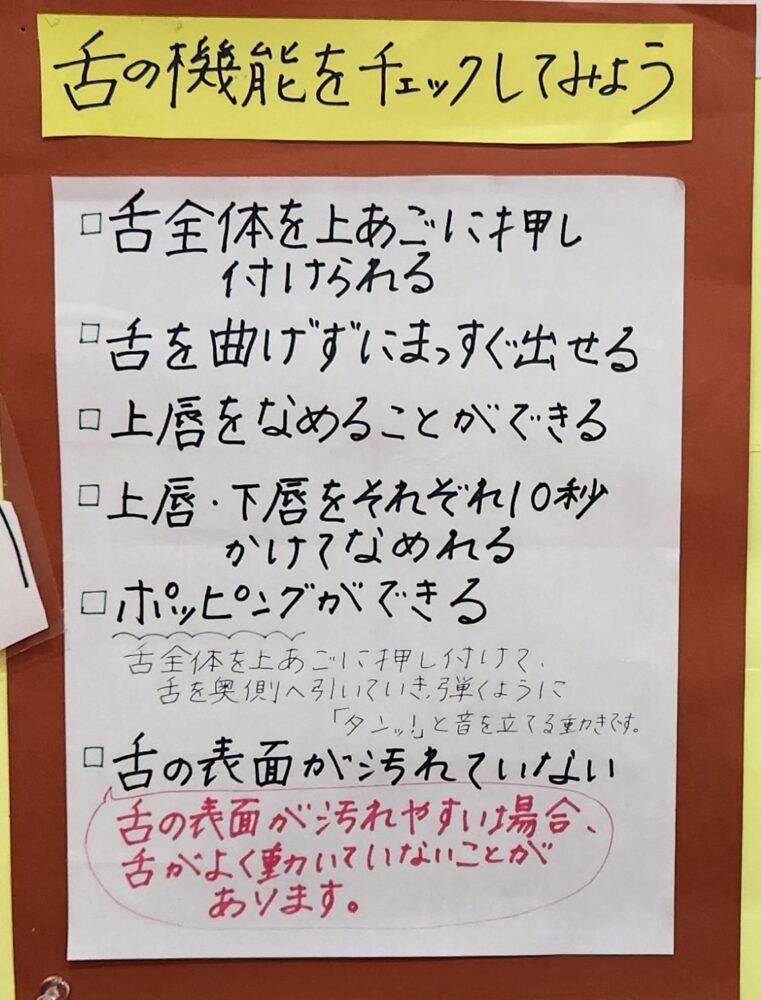 舌の機能をチェックしてみよう
□舌全体を上あごに押し
付けられる
□舌を曲げずにまっすぐ出せる
□上唇をなめることができる
□上唇・下唇をそれぞれ10秒
かけてなめれる
□ポッピングができる
舌全体を上あごに押し付けて、
舌を奥側へ引いていき、弾くように
「タンッ!」と音を立てる動きです。
□舌の表面が汚れていない
舌の表面が汚れやすい場合、
舌がよく動いていないことが
あります。